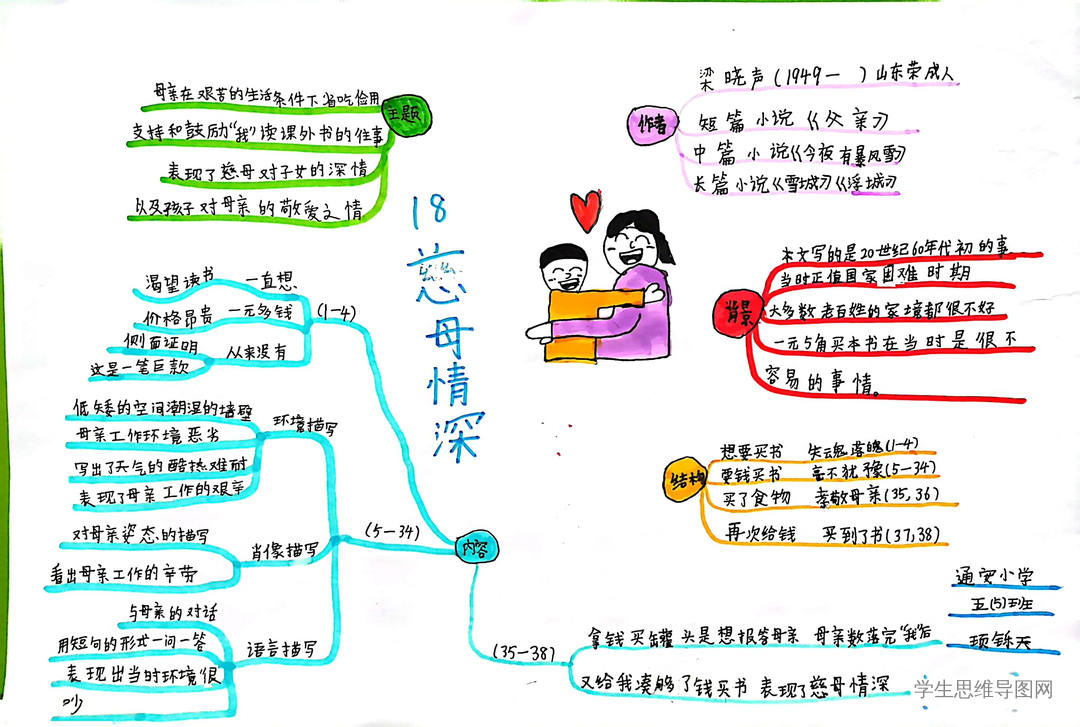 18慈母情深
主题
母亲在艰苦的生活条件下省吃俭用
支持和鼓励“我”读课外书的往事
表现了慈母对子女的深情
以及孩子对母亲的敬爱之情
作者
梁晓声(1949— )山东荣成人
短篇小说《父亲》
中篇小说《今夜有暴风雪》
长篇小说《雪城》《浮城》
背景
本文写的是20世纪60年代初的事
当时正值国家困难时期
大多数老百姓的家境都很不好
一元5角买本书在当时是很不
容易的事情。
结构
想要买书 失魂落魄(1-4)
要钱买书 毫不犹豫(5-34)
买了食物 孝敬母亲(35,36)
再次给钱 买到了书(37,38)
内容
(1-4)
渴望读书 一直想
价格昂贵 一元多钱
侧面证明 从来没有
这是一笔巨款
(5-34)
环境描写
低矮的空间潮湿的墙壁
母亲工作环境恶劣
写出了天气的酷热难耐
表现了母亲工作的艰辛
肖像描写
对母亲姿态的描写
看出母亲工作的辛劳
语言描写
与母亲的对话
用短句的形式一问一答
表现出当时环境很
吵
(35-38)
拿钱买罐头是想报答母亲 母亲数落完“我”后
又给我凑够了钱买书 表现了慈母情深
通安小学
五(5)班
学生思维导图网